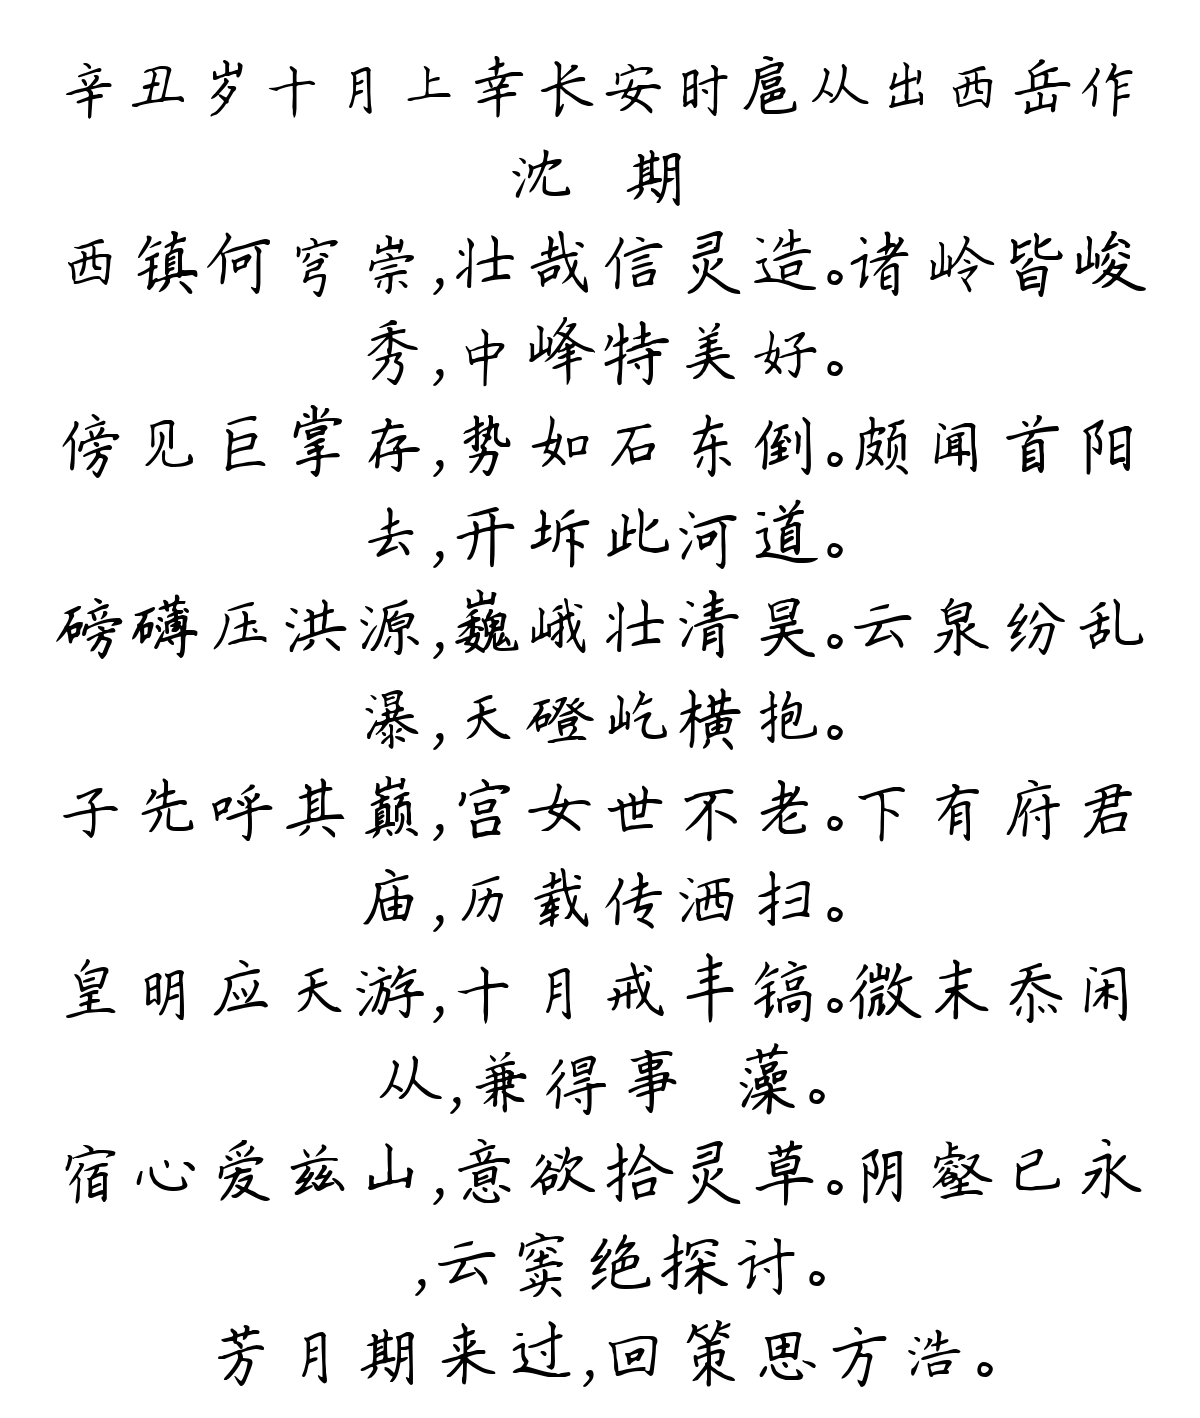 辛丑岁十月上幸长安时扈从出西岳作
沈 期
西镇何穹崇,壮哉信灵造。诸岭皆峻
秀,中峰特美好。
傍见巨掌存,势如石东倒。颇闻首阳
去,开坼此河道。
磅礴压洪源,巍峨壮清昊。云泉纷乱
瀑,天磴屹横抱。
子先呼其巅,宫女世不老。下有府君
庙,历载传洒扫。
皇明应天游,十月戒丰镐。微末忝闲
从,兼得事 藻。
宿心爱兹山,意欲拾灵草。阴壑已永
,云窦绝探讨。
芳月期来过,回策思方浩。